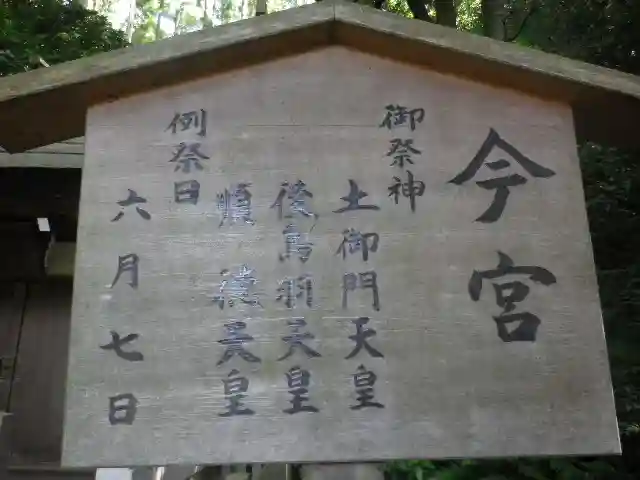 今宮
御祭神
土御門天皇
後鳥羽天皇
順德天皇
例祭日
六月七日